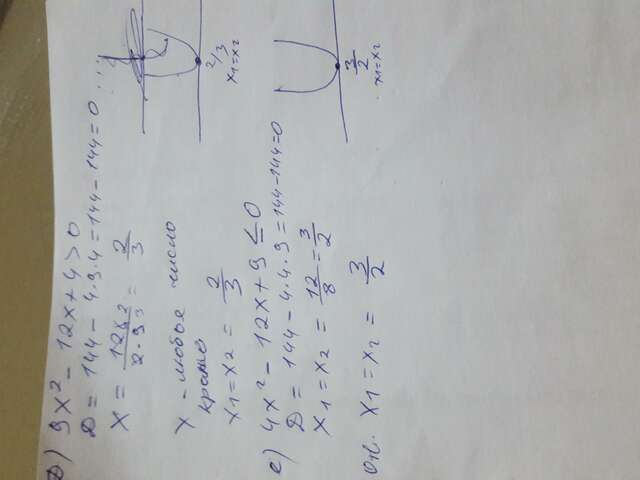 д) 9x² - 12x + 4 > 0
D = 144 - 4·9·4 = 144 - 144 = 0
2/3
x1=x2
x - любое число
кроме
x1 = x2 = 2/3
е) 4x² - 12x + 9 ≤ 0
D = 144 - 4·4·9 = 144 - 144 = 0
x1 = x2 = 12/8 = 3/2
3/2
x1=x2
Отв. x1 = x2 = 3/2